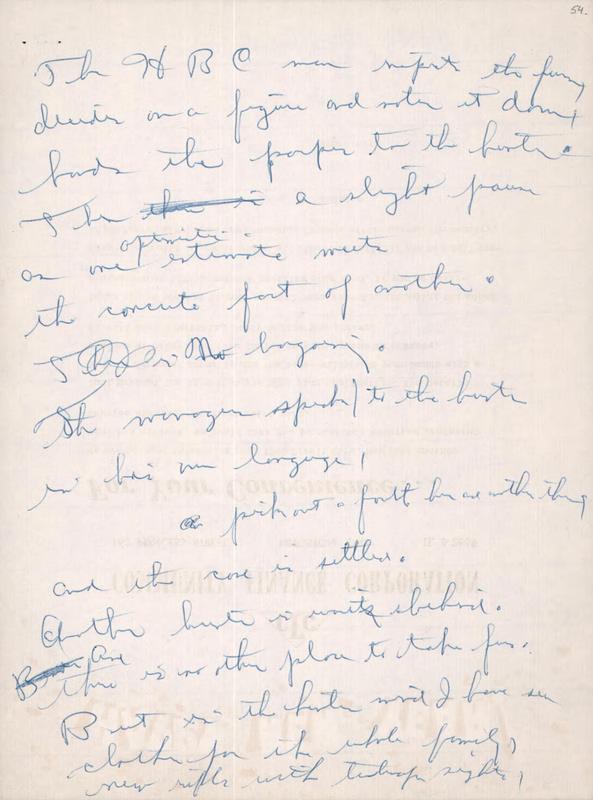 54.
The H B C man inspects the furs,
decides on a figure and notes it down,
hands the paper to the hunter.
The a slight pause
as one optimistic estimate meets
the concrete fact of another.
There is no bargaining.
The manager speaks to the hunter
in his own language,
pick out a fault here or another thing
and the case is settled.
Another hunter is waiting behind.
And
there is no other place to take furs.
But in the hunter's mind I have seen
clothes for the whole family,
new rifles with telescope sights,